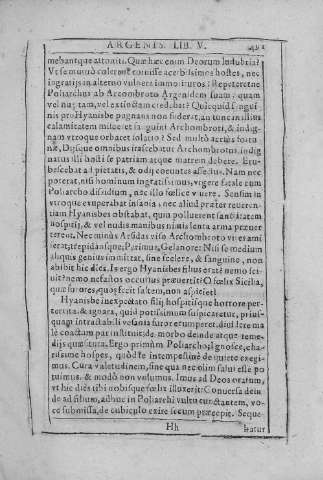 ARGENIS. LIB. V.
mebant que attoniti. Quæ hæc enim Deorum ludibria?
Vt se mutuò colerent comisse acerbissimos hostes, nec
ingratijs in alterno vulnere immorituros? Repeteretne
Poliarchus ab Arcombroto Argenidem suam? quam
vel nuptam, vel extinctam credebat? Quicquid sangui-
nis pro Hyanisbe pagnans non fuderat, an tunc in illius
calamitatem mitteret in sinu Archombroti, & indig-
nam vtroque orbaret solatio? Sed multò acriùs fortu-
næ, Dijsque omnibus irascebatur Archombrotus, indig-
natus illi hosti se patriam atque matrem debere. Eru-
bescebat ad pietatis, & odij coeuntes affectus. Nam nec
poterat, nisi hominum ingratissimus, vrgere fatale cum
Poliarcho dissidium, nec illo fœlice viuere. Sensim in
vtroque exuperabat insania, nec aliud præter reueren-
tiam Hyanisbes obstabat, quin polluerent sanctitatem
hospitij, & vel nudis manibus nimis lenta arma præuer-
terent. Nec minùs Arsidas viso Archombroto vt exami-
erat; trepidansque, Parimus, Gelanore: Nisi se medium
aliquis genius immittat, sine scelere, & sanguine, non
abibit hic dies. Is ergo Hyanisbes filius erat? nemo sci-
uit? nemo nefastos occursus præuertit? O fœlix Sicilia,
quæ furores, quos fecit saltem, non aspiciet!
Hyanisbe inexpectato filij hospitisque horrore per-
territa, & ignara, quid potissimum suspicaretur, prius-
quam intractabili vesania furor erumperet, diuulsere ma-
lè coactam par instituit; de morbo deinde atque reme-
dijs quæsitura. Ergo primùm Poliarcho, Ignosce, cha-
rissime hospes, quòd te intempestiuè de quiete exegi-
mus. Cura valetudinem, sine qua nec olim salui esse po-
tuimus, & modò non volumus. Imus ad Deos oratum,
vt hic dies tibi nobisque fœlix illuxerit: Conuersa dein-
de ad filium, adhuc in Poliarchi vultu cunctantem, vo-
ce submissa, de cubiculo exire secum præcepit. Seque-
Hh
batur